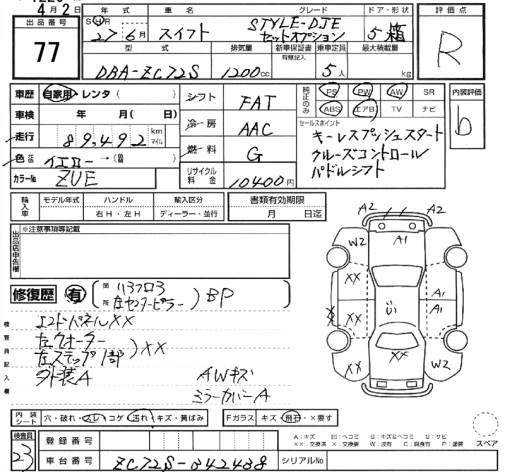 4月2日
出品番号
77
年式 車名 グレード ドア・形状
27年6月 スイフト STYLE-DJE セットオプション 5 箱
型式 排気量 新車保証書 乗車定員 最大積載量
有償記入
DBA-ZC72S 1200cc 5人 kg
評価点
R
車歴 自家用・レンタ( )
車検 年 月
走行 89,492 km マイル
色 イエロー→( )
カラーNo ZUE
シフト FAT
冷房 AAC
燃料 G
リサイクル料金 10400円
純正のみ PS PW AW SR
ABS エアB TV ナビ
内装評価
b
セールスポイント
キーレスプッシュスタート
クルーズコントロール
パドルシフト
輸入車 モデル年式 ハンドル 輸入区分
右H・左H ディーラー・並行
書類有効期限
月 日迄
出品店申告欄
※注意事項等記載
修復歴 有
左センターピラー BP
検査員記入欄
エンドパネルXX
左クォーター
左ステップ1部 XX
外装A
AWキズ
ミラーカバーA
A2 A2
W2 A1 W2
XX A1
XX A1
XX
内装シート 穴・破れ・スレ・コゲ・汚れ・キズ・黄ばみ
Fガラス キズ・飛石・×要す
A:キズ
XX:交換済 X:要交換 W:波有 C:腐食有 P:塗装
スペア
検査員
23
登録番号
車台番号 ZC72S-342438
シリアルNo